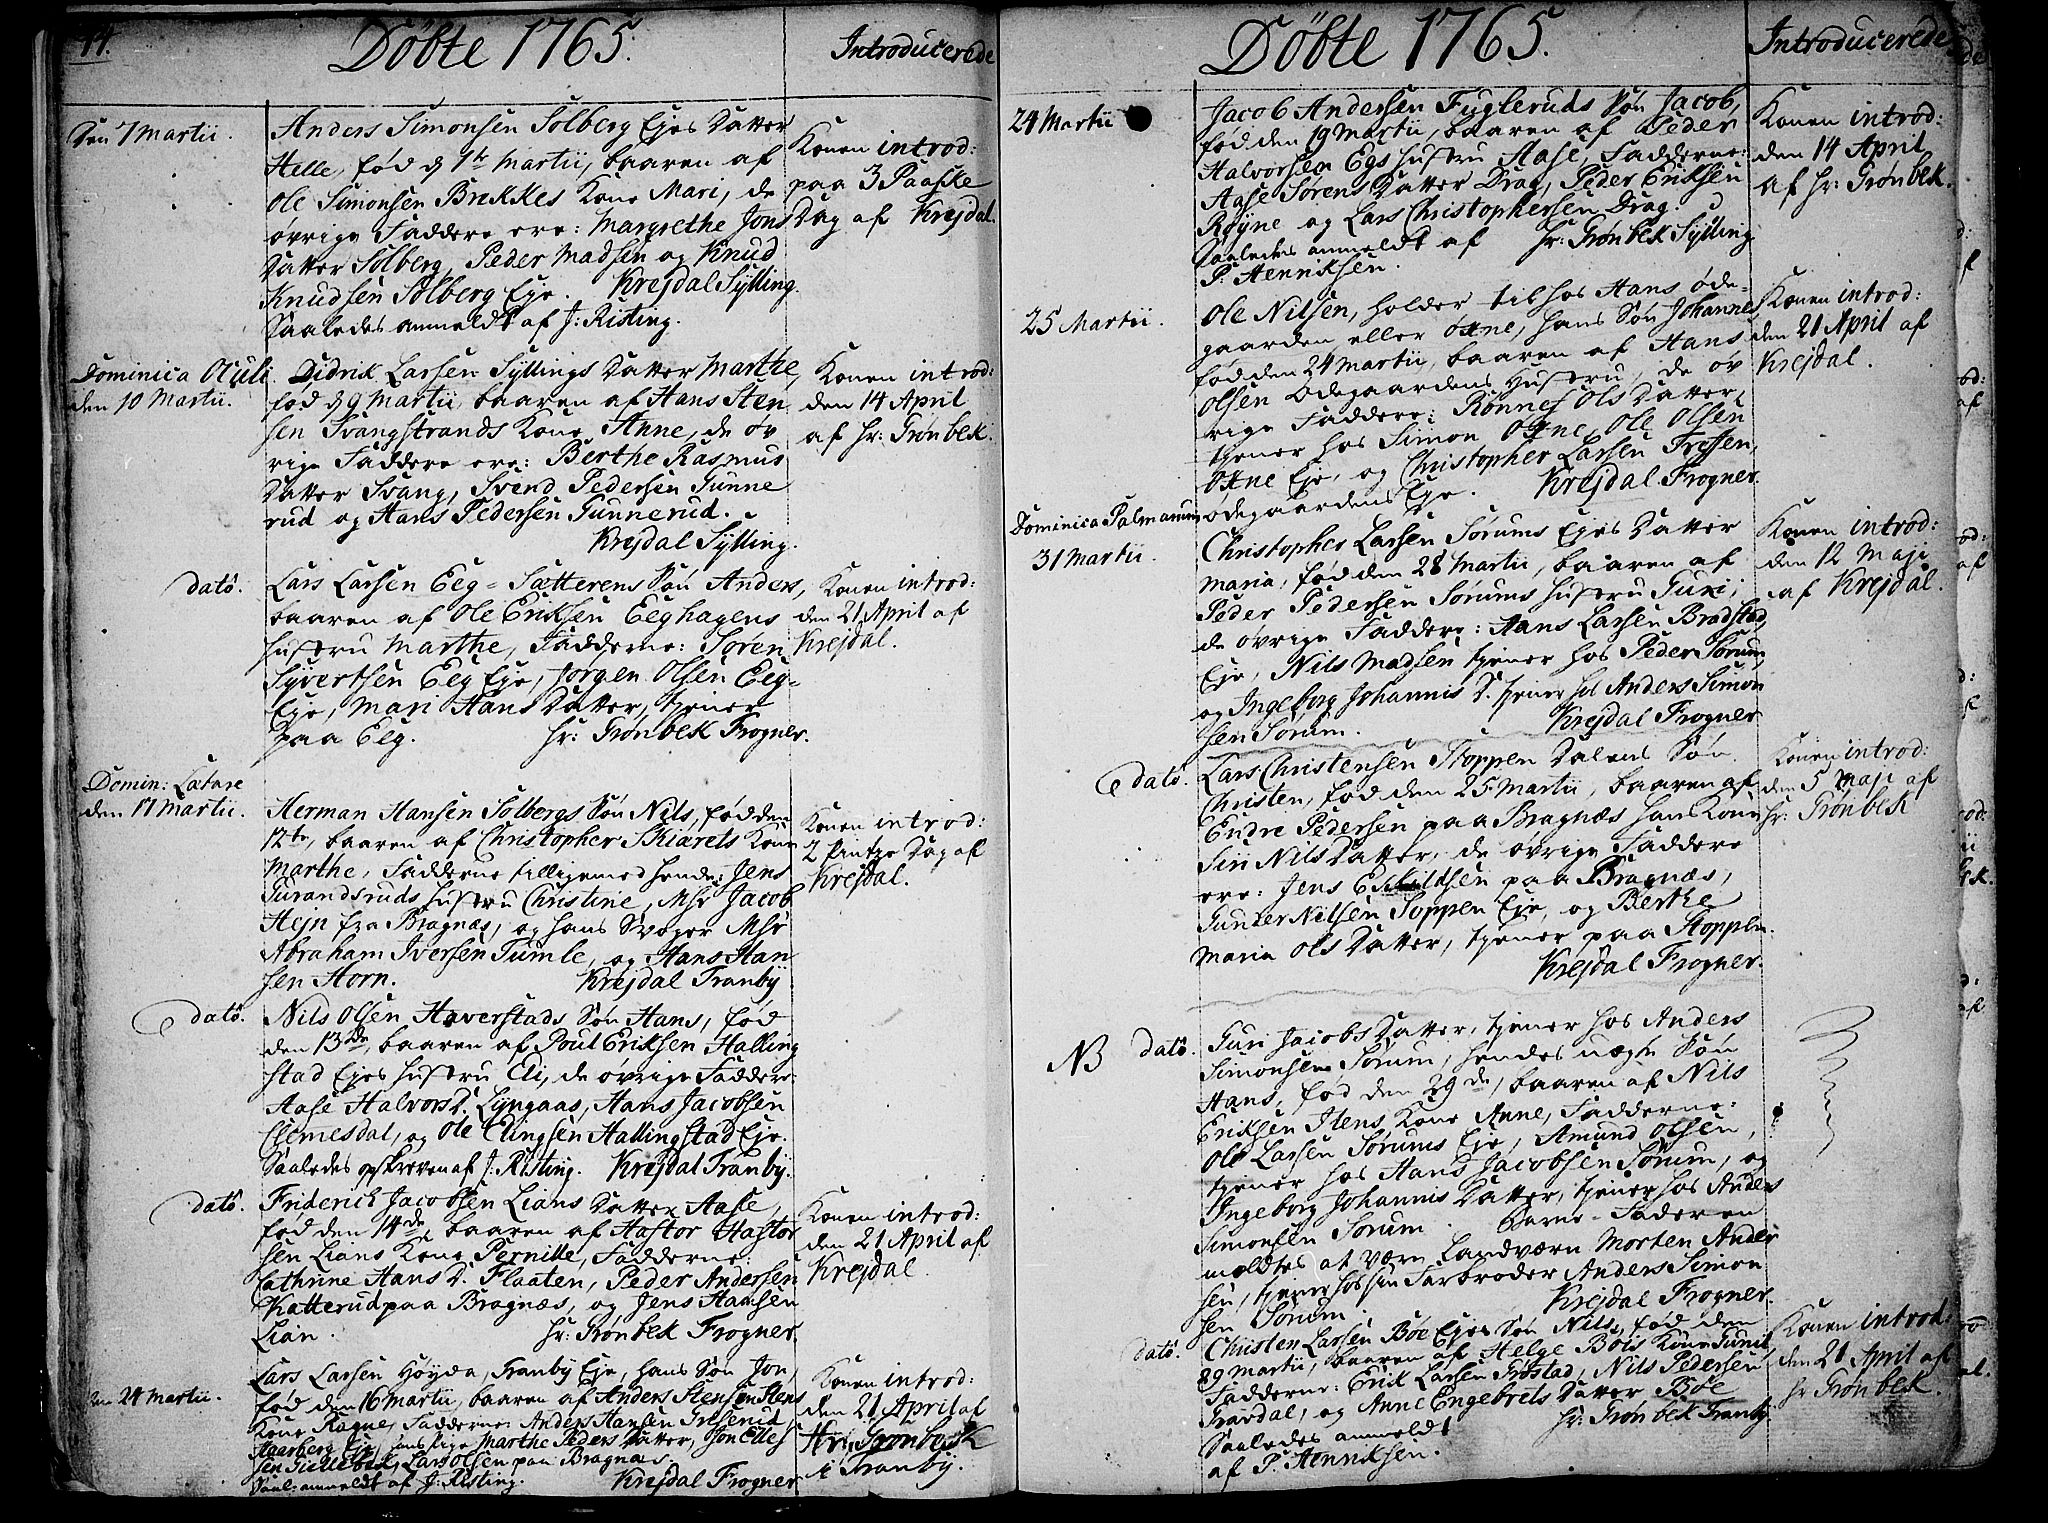 44.
Döbte 1765.
Introducerede
Den 7 Martii.
Anders Simonsen Solberg Ejes Datter
Helle, fød d 1te Martii, baaren af
Ole Simonsen Brekkes Kone Mari, de
øvrige Faddere ere: Margrethe Jons
Datter Solberg, Peder Madsen og Knud
Knudsen Solberg Eje. Krejdal Sylling.
Saaledes anmeldt af J: Risting.
Konen introd:
paa 3 Paaske
Dag af Krejdal.
Dominica Oculi
den 10 Martii.
Didrik Larsen Syllings Datter Marthe,
fød d 9 Martii, baaren af Hans Sten
sen Svangstrands Kone Anne, de øv
rige Faddere ere: Berthe Rasmus
Datter Svang, Svend Pedersen Gunne
rud og Hans Pedersen Gunnerud.
Krejdal Sylling.
Konen introd:
den 14 April
af Hr: Grønbek.
dato.
Lars Larsen Eeg-Sætterens Søn Anders,
baaren af Ole Eriksen Eeghagens
Hustru Marthe, Fadderne: Søren
Syvertsen Eeg Eje, Jørgen Olsen Eeg-
Eje, Mari Hans Datter, tjener
paa Eeg. Hr: Grønbek Frogner.
Konen introd:
den 21 April af
Krejdal.
Domin: Lætare
den 17 Martii.
Herman Hansen Solbergs Søn Nils, fød den
12te, baaren af Christopher Skiærets Kone
Marthe, Fadderne tilligemed hende: Jens
Gurandsruds Hustru Christine, Msr Jacob
Hejn fra Bragnæs, og hans Svoger Msr
Abraham Iversen Tumle, og Hans Han
sen Horn. Krejdal Tranby.
Konen introd:
2 Pintze Dag af
Krejdal.
dato.
Nils Olsen Haverstads Søn Hans, fød
den 13de, baaren af Poul Eriksen Halling
stad Ejes Hustru Eli, de øvrige Faddere:
Aase Halvors D. Lyngaas, Hans Jacobsen
Clemesdal, og Ole Elingsen Hallingstad Eje.
Saaledes opskreven af J: Risting. Krejdal Tranby.
dato.
Friderich Jacobsen Lians Datter Aase,
fød den 14de, baaren af Hastor Hastor
sen Lians Kone Pernille, Fadderne:
Cathrine Hans D. Flaaten, Peder Andersen
Katterud paa Bragnæs, og Jens Hansen
Lian. Hr: Grønbek Frogner.
Konen introd:
den 21 April af
Krejdal.
den 24 Martii.
Lars Larsen Høyda, Tranby Eje, hans Søn Jon,
fød den 16 Martii, baaren af Anders Stensen Stens
Kone Ragne, Fadderne: Anders Hansen
Haarberg Eje, hans Pige Marthe Peders Datter, Jon Elles
sen Gielleback, Lars Olsen paa Bragnæs.
Saal: anmeldt af J: Risting. Krejdal Frogner
Konen introd:
den 21 April af
Hr: Grønbek
i Tranby.
Döbte 1765.
Introducerede
24 Martii
Jacob Andersen Fugleruds Søn Jacob,
fød den 19 Martii, baaren af Peder
Halvorsen Egs Hustru Aase, Fadderne:
Aase Sørens Datter Drag, Peder Eriksen
Røyne og Lars Christophersen Drag.
Saaledes anmeldt af Hr: Grønbek Sylling
P. Henriksen.
Konen introd:
den 14 April
af Hr: Grønbek.
25 Martii.
Ole Nilsen, holder til hos Hans Øde-
gaarden eller Oxne, hans Søn Johannes,
fød den 24 Martii, baaren af Hans
Olsen Ødegaardens Hustru, de øv
rige Faddere: Rønnef Ols Datter,
tjener hos Simon Oxne, Ole Olsen
Oxne Eje, og Christopher Larsen Fressen,
Ødegaardens Eje. Krejdal Frogner.
Konen introd:
den 21 April af
Krejdal.
Dominica Palmarum
31 Martii.
Christopher Larsen Sørums Ejes Datter
Maria, fød den 28 Martii, baaren af
Peder Pedersen Sørums Hustru Guri;
de øvrige Faddere: Hans Larsen Bradstad
Eje, Nils Madsen tjener hos Peder Sørum,
og Ingeborg Johannis D. tjener hos Anders Simon
sen Sørum. Krejdal Frogner
Konen introd:
den 12 Maji
af Krejdal.
dato.
Lars Christensen Stoppen Dalens Søn
Christen, fød den 25 Martii, baaren af
Endre Pedersen paa Bragnæs hans Kone
Siri Nils Datter, de øvrige Faddere
ere: Jens Eskildsen paa Bragnæs,
Gunder Nilsen Soppen Eje, og Berthe
Maria Ols Datter, tjener paa Stoppen.
Krejdal Frogner.
Konen introd:
den 5 Maji af
Hr: Grønbek
NB dato.
Guri Jacobs Datter, tjener hos Anders
Simonsen Sørum, hendes uægte Søn
Hans, fød den 29de, baaren af Nils
Eriksen Stens Kone Anne, Fadderne:
Ole Larsen Sørums Eje, Amund Olsen,
tjener hos Hans Jacobsen Sørum, og
Ingeborg Johannis Datter, tjener hos Anders
Simonsen Sørum. Barne-Faderen
meldtes at være Landværn Morten Ander
sen, tjener hos sin Farbroder Anders Simon
sen Sørum. Krejdal Frogner
dato.
Christen Larsen Bøe Ejes Søn Nils, fød den
29 Martii, baaren af Helge Bøes Kone Gunil
Fadderne: Erik Larsen Frøstad, Nils Pedersen
Gravdal, og Anne Engebrets Datter Bøe
Saaledes anmeldt Hr: Grønbek Tranby
af P. Henriksen.
Konen introd:
den 21 April af
Hr Grønbek.